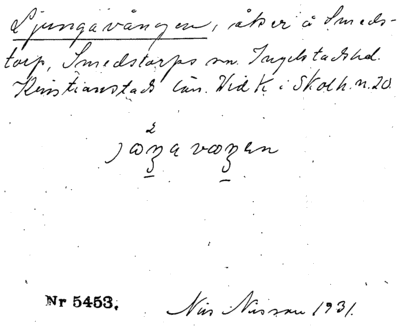 Ljungavången, åker å Smeds-
torp, Smedstorps sn. Ingelstads hd.
Kristianstads län. Vid K i Skolh. n. 20
Nr 5453.
Nils Nilsson 1931.